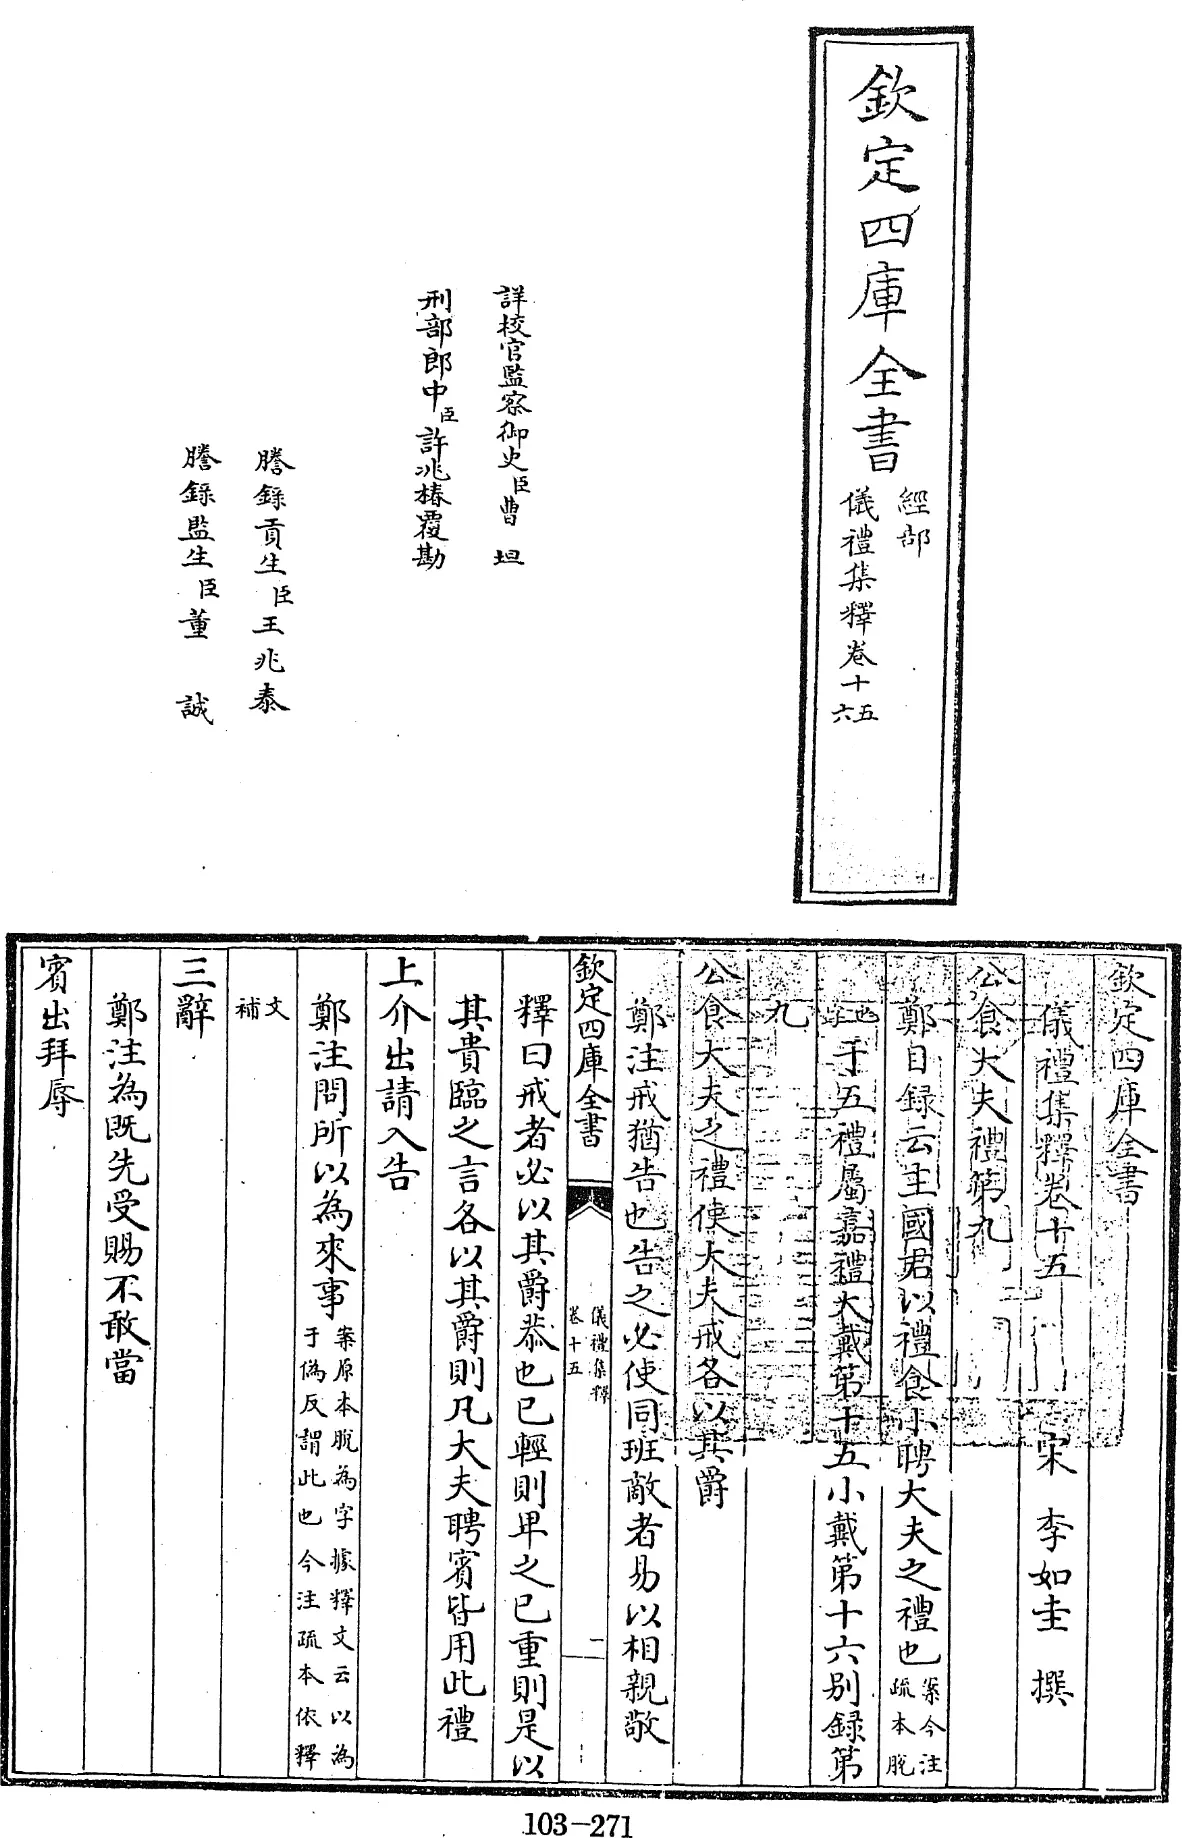 欽定四庫全書
經部
儀禮集釋卷十五六
詳校官監察御史臣曹坦
刑部郎中臣許兆椿覆勘
謄錄貢生臣王兆泰
謄錄監生臣董誠
欽定四庫全書
儀禮集釋卷十五 宋 李如圭 撰
公食大夫禮第九
鄭目録云主國君以禮食小聘大夫之禮也案今注疏本脫
也字于五禮屬嘉禮大戴第十五小戴第十六别録第
九
公食大夫之禮使大夫戒各以其爵
鄭注戒猶告也告之必使同班敵者易以相親敬
欽定四庫全書 儀禮集釋卷十五 一
釋曰戒者必以其爵恭也已輕則卑之已重則是以
其貴臨之言各以其爵則凡大夫聘賓皆用此禮
上介出請入告
鄭注問所以為來事案原本脫為字據釋文云以為于偽反謂此也今注疏本依釋
文補
三辭
鄭注為既先受賜不敢當
賓出拜辱
103-271